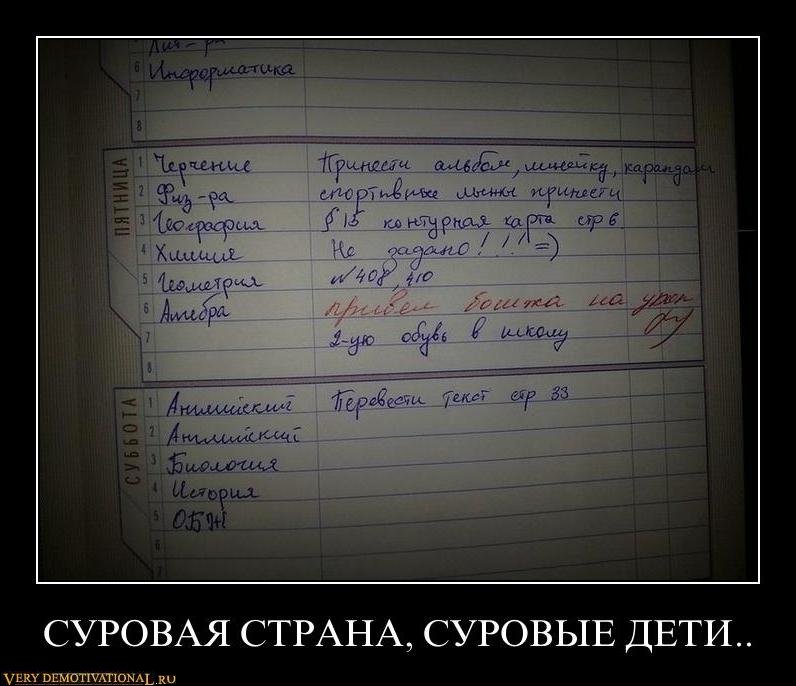 Лит-ра
6 Информатика
7
8
ПЯТНИЦА
1 Черчение Принести альбом, линейку, карандаш
2 Физ-ра спортивные лыжи принести
3 География § 15 контурная карта стр 6
4 Химия Не задано!!! =)
5 Геометрия №408, 410
6 Алгебра привел бомжа на урок
7 2-ую обувь в школу
8
СУББОТА
1 Английский Перевести текст стр 33
2 Английский
3 Биология
4 История
5 ОБЖ
6
7
СУРОВАЯ СТРАНА, СУРОВЫЕ ДЕТИ..
VERY DEMOTIVATIONAL.RU